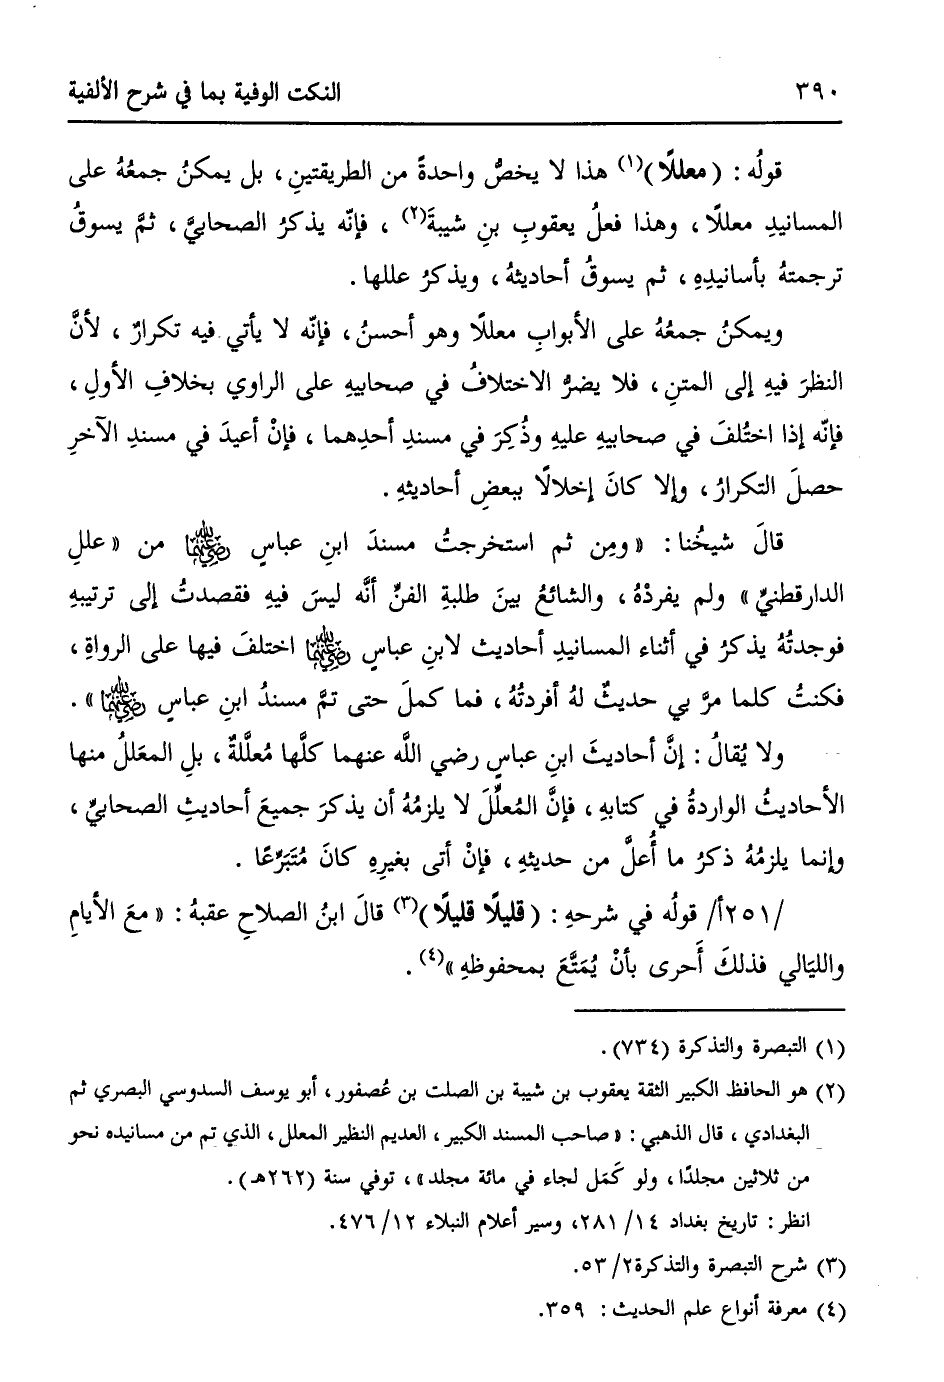 ٣٩٠ النكت الوفية بما في شرح الألفية
قولُه : (معللًا)(١) هذا لا يخصُّ واحدةً من الطريقتينِ ، بل يمكنُ جمعُهُ على
المسانيدِ معللًا ، وهذا فعلُ يعقوبِ بنِ شيبةَ(٢) ، فإنّه يذكرُ الصحابيَّ ، ثمَّ يسوقُ
ترجمتهُ بأسانيدِهِ ، ثم يسوقُ أحاديثهُ ، ويذكرُ عللها .
ويمكنُ جمعُهُ على الأبوابِ معللًا وهو أحسنُ ، فإنّه لا يأتي فيه تكرارٌ ، لأنَّ
النظرَ فيهِ إلى المتنِ ، فلا يضرُّ الاختلافُ في صحابيهِ على الراوي بخلافِ الأولِ ،
فإنّه إذا اختُلفَ في صحابيهِ عليهِ وذُكِرَ في مسندِ أحدِهما ، فإنْ أعيدَ في مسندِ الآخرِ
حصلَ التكرارُ ، وإلا كانَ إخلالًا ببعضِ أحاديثهِ .
قالَ شيخُنا : « ومِن ثم استخرجتُ مسندَ ابنِ عباسٍ رضي الله عنهما من « عللِ
الدارقطنيِّ » ولم يفردْهُ ، والشائعُ بينَ طلبةِ الفنِّ أنَّه ليسَ فيهِ فقصدتُ إلى ترتيبهِ
فوجدتُهُ يذكرُ في أثناء المسانيدِ أحاديث لابنِ عباسٍ رضي الله عنهما اختلفَ فيها على الرواةِ ،
فكنتُ كلما مرَّ بي حديثٌ لهُ أفردتُهُ ، فما كملَ حتى تمَّ مسندُ ابنِ عباسٍ رضي الله عنهما » .
ولا يُقالُ : إنَّ أحاديثَ ابنِ عباسٍ رضي اللَّه عنهما كلَّها مُعلَّلةٌ ، بلِ المعَللُ منها
الأحاديثُ الواردةُ في كتابهِ ، فإنَّ المُعلِّلَ لا يلزمُهُ أن يذكرَ جميعَ أحاديثِ الصحابيِّ ،
وإنما يلزمُهُ ذكرُ ما أُعلَّ من حديثهِ ، فإنْ أتى بغيرِهِ كانَ مُتَبَرِّعًا .
/٢٥١أ/ قولُه في شرحهِ : (قليلًا قليلًا)(٣) قالَ ابنُ الصلاحِ عقبهُ : « معَ الأيامِ
والليَالي فذلكَ أَحرى بأنْ يُمَتَّعَ بمحفوظهِ »(٤) .
(١) التبصرة والتذكرة (٧٣٤).
(٢) هو الحافظ الكبير الثقة يعقوب بن شيبة بن الصلت بن عُصفور ، أبو يوسف السدوسي البصري ثم
البغدادي ، قال الذهبي : « صاحب المسند الكبير ، العديم النظير المعلل ، الذي تم من مسانيده نحو
من ثلاثين مجلدًا ، ولو كَمَل لجاء في مائة مجلد » ، توفي سنة (٢٦٢هـ) .
انظر : تاريخ بغداد ١٤/ ٢٨١، وسير أعلام النبلاء ١٢/ ٤٧٦.
(٣) شرح التبصرة والتذكرة٢/ ٥٣.
(٤) معرفة أنواع علم الحديث : ٣٥٩.